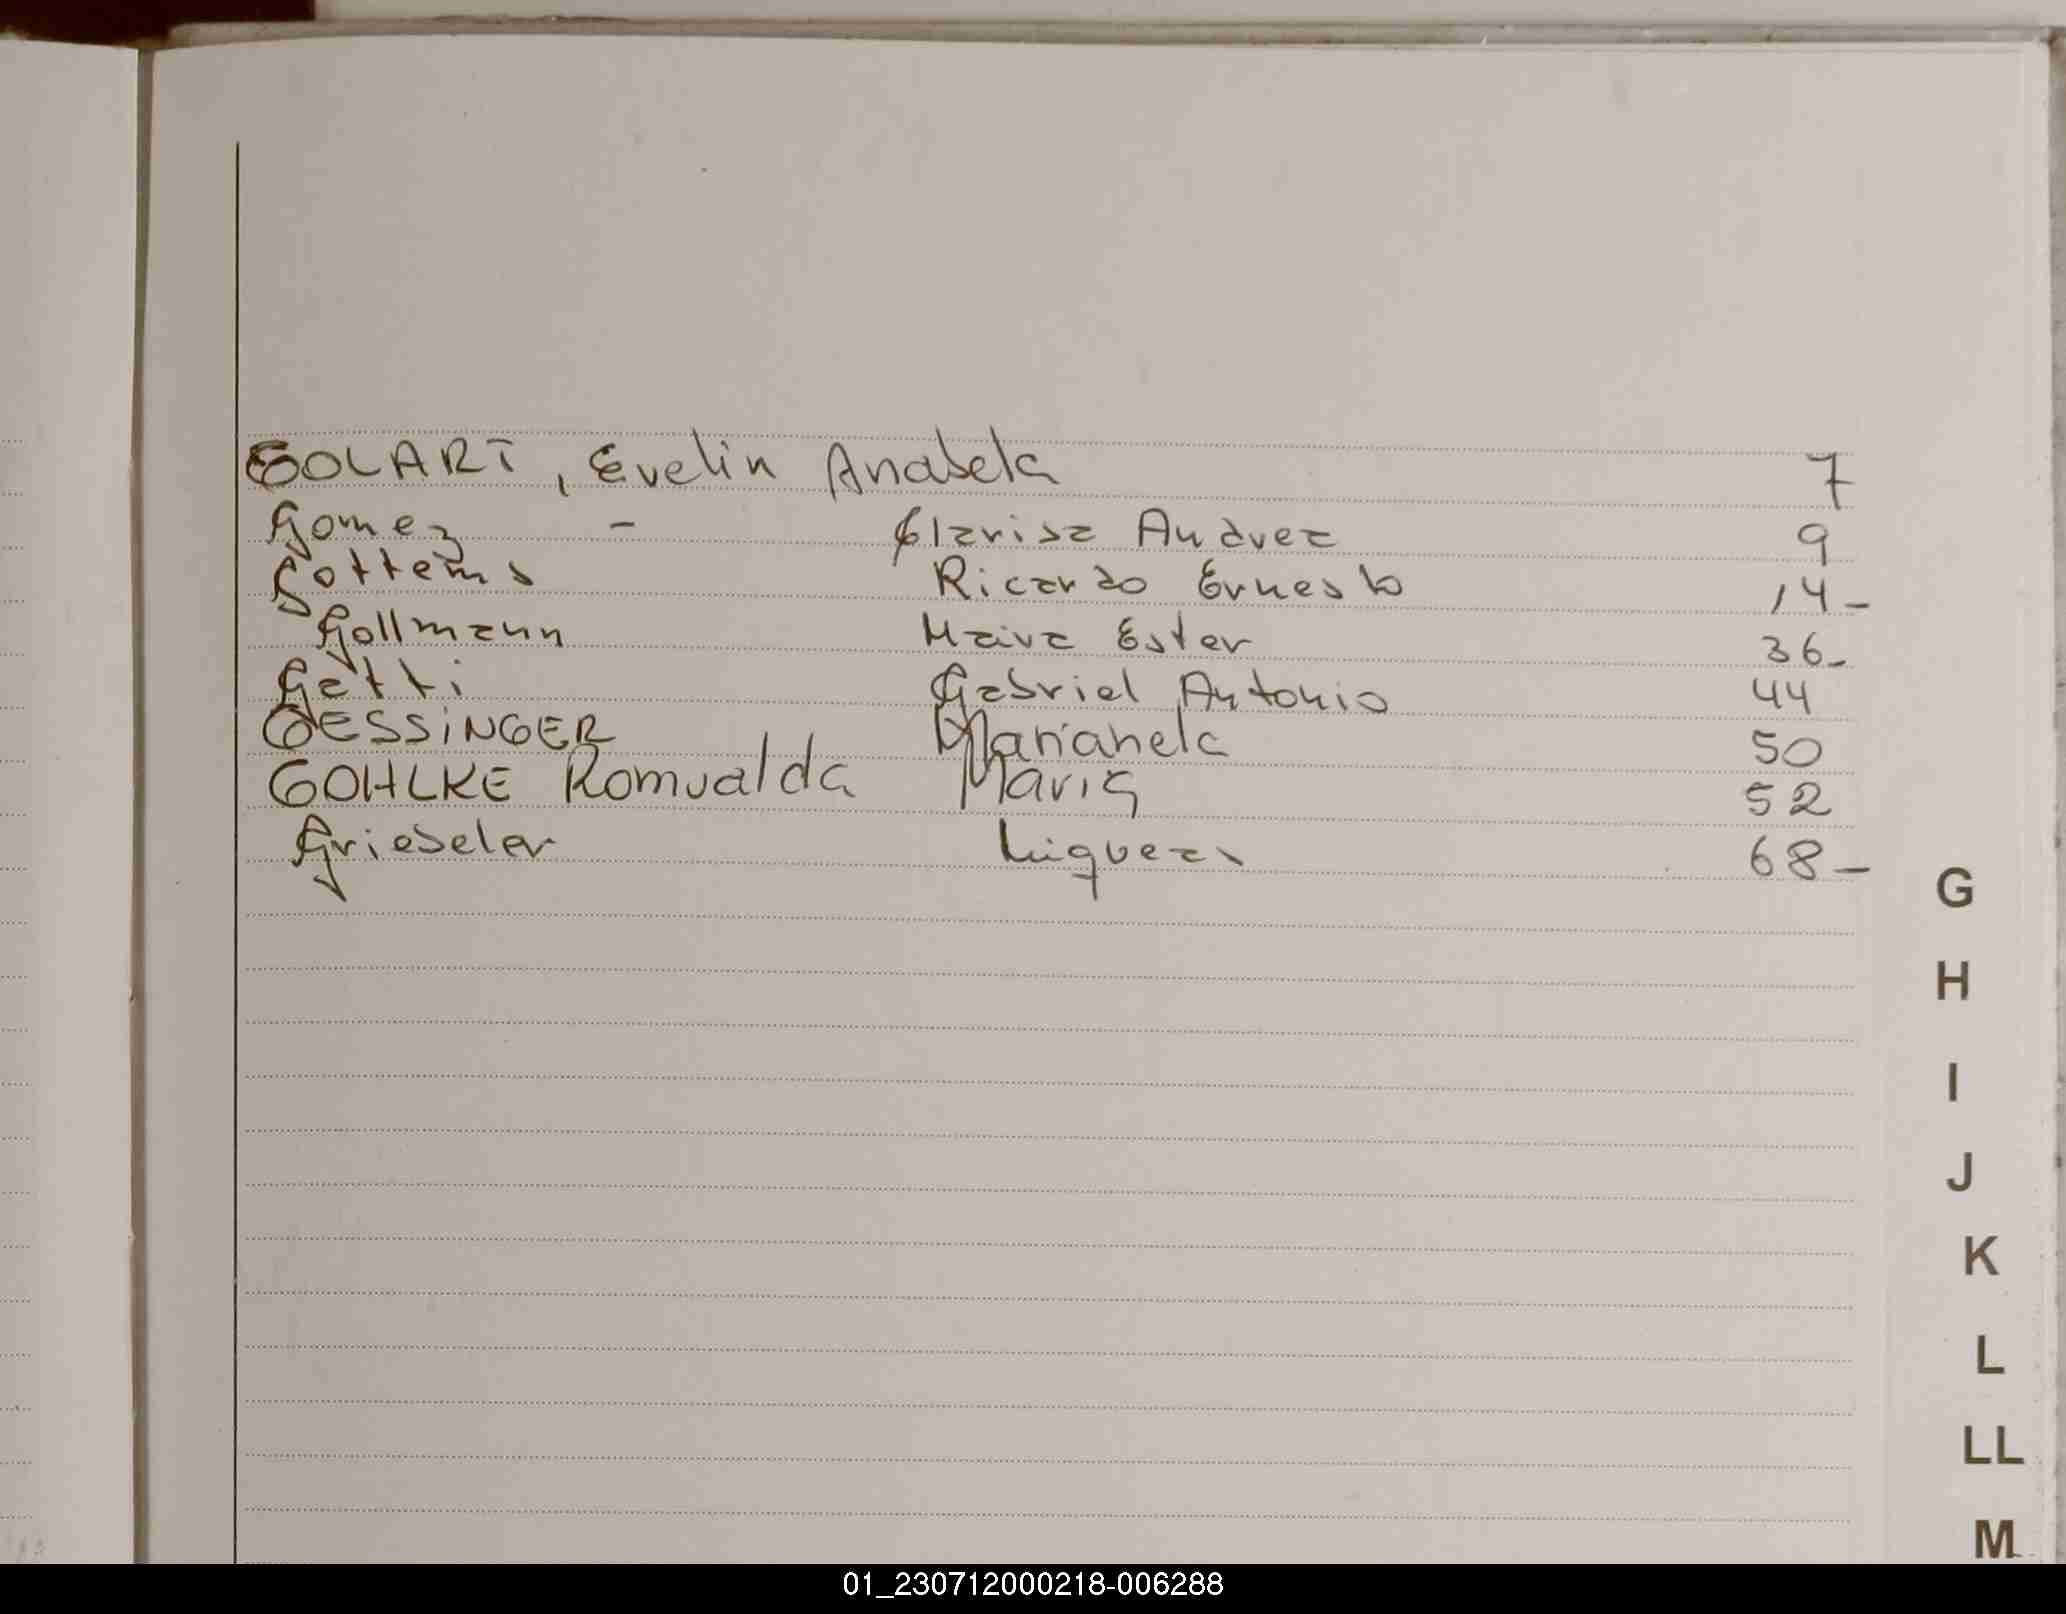 GOLART, Evelin Anabela 7
Gomez - Clarisa Andrea 9
Gottems Ricardo Ernesto 14-
Gollmann Maira Ester 36-
Gatti Gabriel Antonio 44
GESSiNGER Marianela 50
GOHLKE Romualda María 52
Grieseler 68-
G
H
I
J
K
L
LL
M
01_230712000218-006288